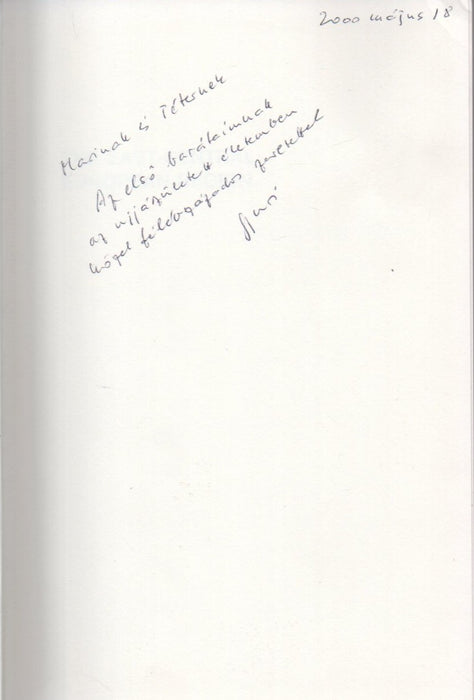 2000 május 18
Marinak és Péternek
Az első barátaimnak
az újjászületett életemben
közel félévszázados szeretettel
Gyuri